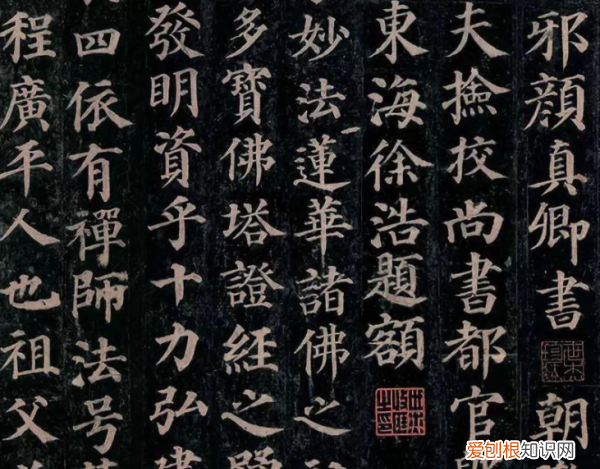 邪顔真卿書朝
夫撿挍尚書都官
東海徐浩題額
妙法蓮華諸佛之
多寶佛塔證經之
發明資乎十力弘
四依有禪師法号
程廣平人也祖父
爱刨根知识网